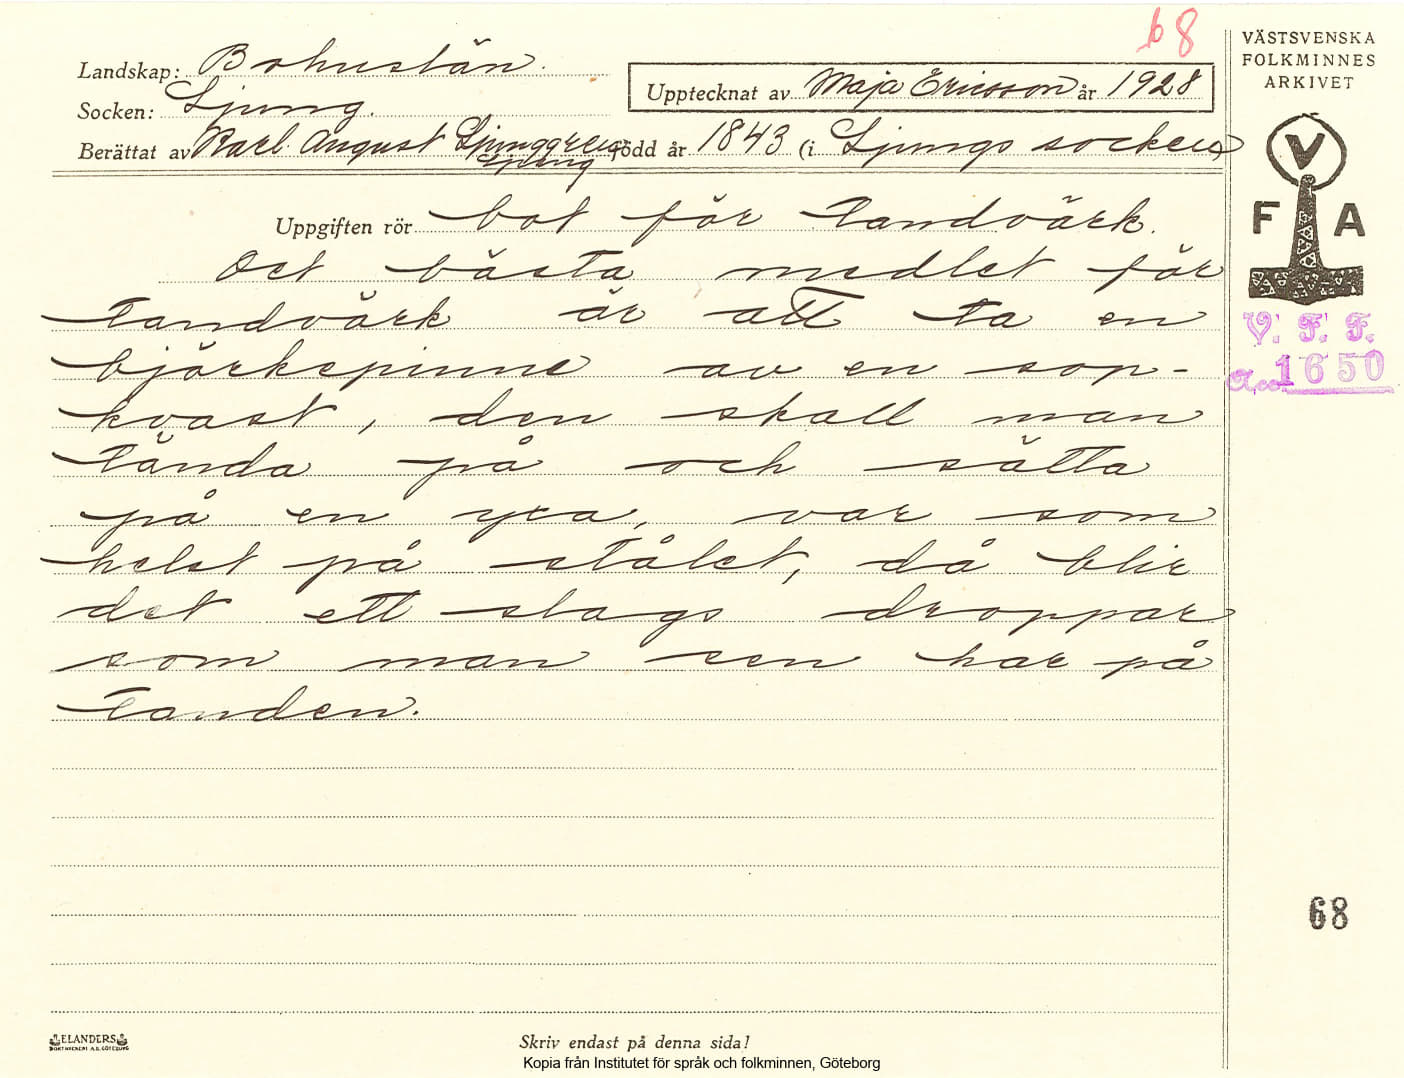 68
Landskap: Bohuslän.
Socken: Ljung.
Upptecknat av Maja Ericsson år 1928
Berättat av Karl August Ljunggren född år 1843 (i Ljungs socken)
Ljung
Uppgiften rör bot för tandvärk.
Det bästa medlet för
tandvärk är att ta en
björkepinne av en sop-
kvast, den skall man
tända på och sätta
på en yxa, var som
helst på stålet, då blir
det ett slags droppar
som man sen har på
tanden.
VÄSTSVENSKA
FOLKMINNES
ARKIVET
V
F A
V. F. F.
Acc 1650
68
ELANDERS
BOKTRYCKERI A.B. GÖTEBORG
Skriv endast på denna sida!
Kopia från Institutet för språk och folkminnen, Göteborg